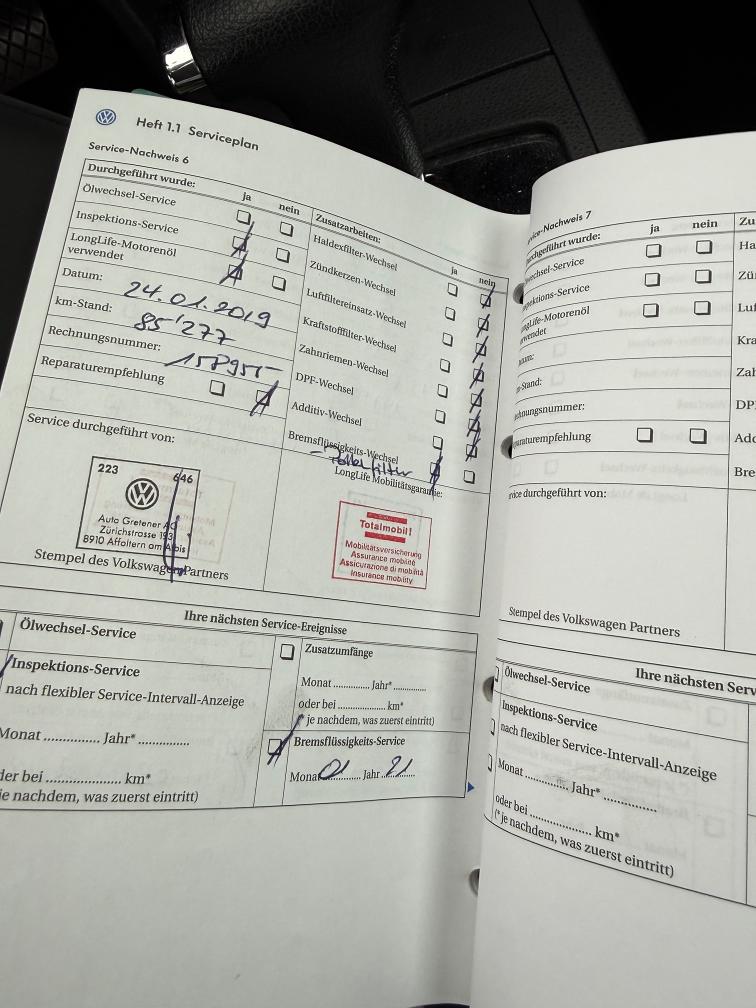 Heft 1.1 Serviceplan
Service-Nachweis 6
Durchgeführt wurde:
ja
nein
Ölwechsel-Service
Inspektions-Service
LongLife-Motorenöl
verwendet
Datum:
24.01.2019
km-Stand:
85'277
Rechnungsnummer:
Reparaturempfehlung
Zusatzarbeiten:
ja
nein
Haldexfilter-Wechsel
Zündkerzen-Wechsel
Luftfiltereinsatz-Wechsel
Kraftstofffilter-Wechsel
Zahnriemen-Wechsel
DPF-Wechsel
Additiv-Wechsel
Bremsflüssigkeits-Wechsel
- Pollenfilter
Service durchgeführt von:
223
646
Auto Gretener AG
Zürichstrasse 193
8910 Affoltern am Albis
Stempel des Volkswagen Partners
LongLife Mobilitätsgarantie:
Totalmobil!
Mobilitätsversicherung
Assurance mobilité
Assicurazione di mobilità
Insurance mobility
Ihre nächsten Service-Ereignisse
Ölwechsel-Service
Inspektions-Service
nach flexibler Service-Intervall-Anzeige
Monat ............. Jahr* ............
oder bei .................... km*
(*je nachdem, was zuerst eintritt)
Zusatzumfänge
Monat ............. Jahr* ............
oder bei .................. km*
(*je nachdem, was zuerst eintritt)
Bremsflüssigkeits-Service
Monat 01 Jahr 21
Service-Nachweis 7
Durchgeführt wurde:
ja
nein
Ölwechsel-Service
Inspektions-Service
LongLife-Motorenöl
verwendet
Datum:
km-Stand:
Rechnungsnummer:
Reparaturempfehlung
Zu
Ha
Zü
Luf
Kra
Zah
DP
Add
Bre
Service durchgeführt von:
Stempel des Volkswagen Partners
Ihre nächsten Serv
Ölwechsel-Service
Inspektions-Service
nach flexibler Service-Intervall-Anzeige
Monat ............. Jahr* ...............
oder bei .................... km*
(*je nachdem, was zuerst eintritt)